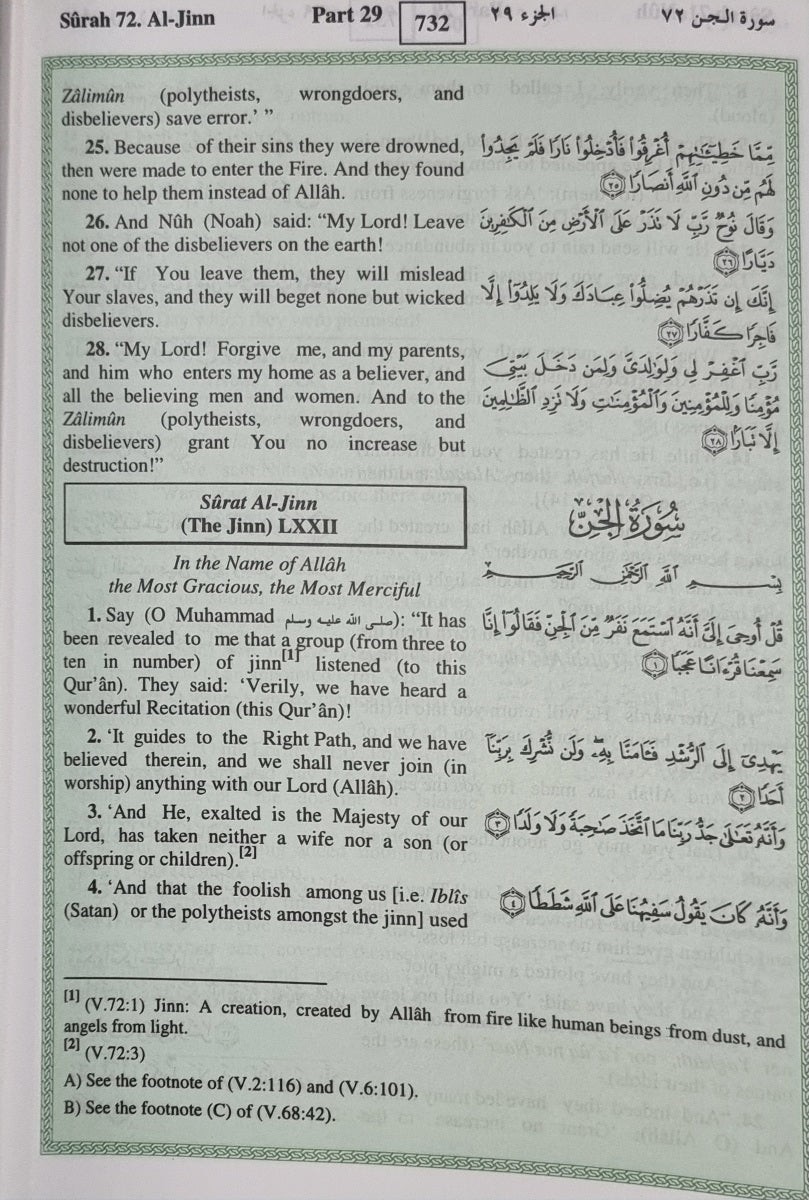 Sûrah 72. Al-Jinn Part 29 732 الجزء ٢٩ سورة الجن ٧٢
Zâlimûn (polytheists, wrongdoers, and
disbelievers) save error.’ ”
25. Because of their sins they were drowned,
then were made to enter the Fire. And they found
none to help them instead of Allâh.
26. And Nûh (Noah) said: “My Lord! Leave
not one of the disbelievers on the earth!
27. “If You leave them, they will mislead
Your slaves, and they will beget none but wicked
disbelievers.
28. “My Lord! Forgive me, and my parents,
and him who enters my home as a believer, and
all the believing men and women. And to the
Zâlimûn (polytheists, wrongdoers, and
disbelievers) grant You no increase but
destruction!”
مِّمَّا خَطِيٓـَٰٔتِهِمْ أُغْرِقُوا۟ فَأُدْخِلُوا۟ نَارًا فَلَمْ يَجِدُوا۟
لَهُم مِّن دُونِ ٱللَّهِ أَنصَارًا ٢٥
وَقَالَ نُوحٌ رَّبِّ لَا تَذَرْ عَلَى ٱلْأَرْضِ مِنَ ٱلْكَٰفِرِينَ
دَيَّارًا ٢٦
إِنَّكَ إِن تَذَرْهُمْ يُضِلُّوا۟ عِبَادَكَ وَلَا يَلِدُوٓا۟ إِلَّا
فَاجِرًا كَفَّارًا ٢٧
رَّبِّ ٱغْفِرْ لِى وَلِوَٰلِدَىَّ وَلِمَن دَخَلَ بَيْتِىَ
مُؤْمِنًا وَلِلْمُؤْمِنِينَ وَٱلْمُؤْمِنَٰتِ وَلَا تَزِدِ ٱلظَّٰلِمِينَ
إِلَّا تَبَارًا ٢٨
Sûrat Al-Jinn
(The Jinn) LXXII
سُورَةُ الْجِنِّ
In the Name of Allâh
the Most Gracious, the Most Merciful
بِسْمِ ٱللَّهِ ٱلرَّحْمَٰنِ ٱلرَّحِيمِ
1. Say (O Muhammad صلى الله عليه وسلم): “It has
been revealed to me that a group (from three to
ten in number) of jinn[1] listened (to this
Qur’ân). They said: ‘Verily, we have heard a
wonderful Recitation (this Qur’ân)!
2. ‘It guides to the Right Path, and we have
believed therein, and we shall never join (in
worship) anything with our Lord (Allâh).
3. ‘And He, exalted is the Majesty of our
Lord, has taken neither a wife nor a son (or
offspring or children).[2]
4. ‘And that the foolish among us [i.e. Iblîs
(Satan) or the polytheists amongst the jinn] used
قُلْ أُوحِىَ إِلَىَّ أَنَّهُ ٱسْتَمَعَ نَفَرٌ مِّنَ ٱلْجِنِّ فَقَالُوٓا۟ إِنَّا
سَمِعْنَا قُرْءَانًا عَجَبًا ١
يَهْدِىٓ إِلَى ٱلرُّشْدِ فَـَٔامَنَّا بِهِۦ وَلَن نُّشْرِكَ بِرَبِّنَآ
أَحَدًا ٢
وَأَنَّهُۥ تَعَٰلَىٰ جَدُّ رَبِّنَا مَا ٱتَّخَذَ صَٰحِبَةً وَلَا وَلَدًا ٣
وَأَنَّهُۥ كَانَ يَقُولُ سَفِيهُنَا عَلَى ٱللَّهِ شَطَطًا ٤
[1] (V.72:1) Jinn: A creation, created by Allâh from fire like human beings from dust, and
angels from light.
[2] (V.72:3)
A) See the footnote of (V.2:116) and (V.6:101).
B) See the footnote (C) of (V.68:42).